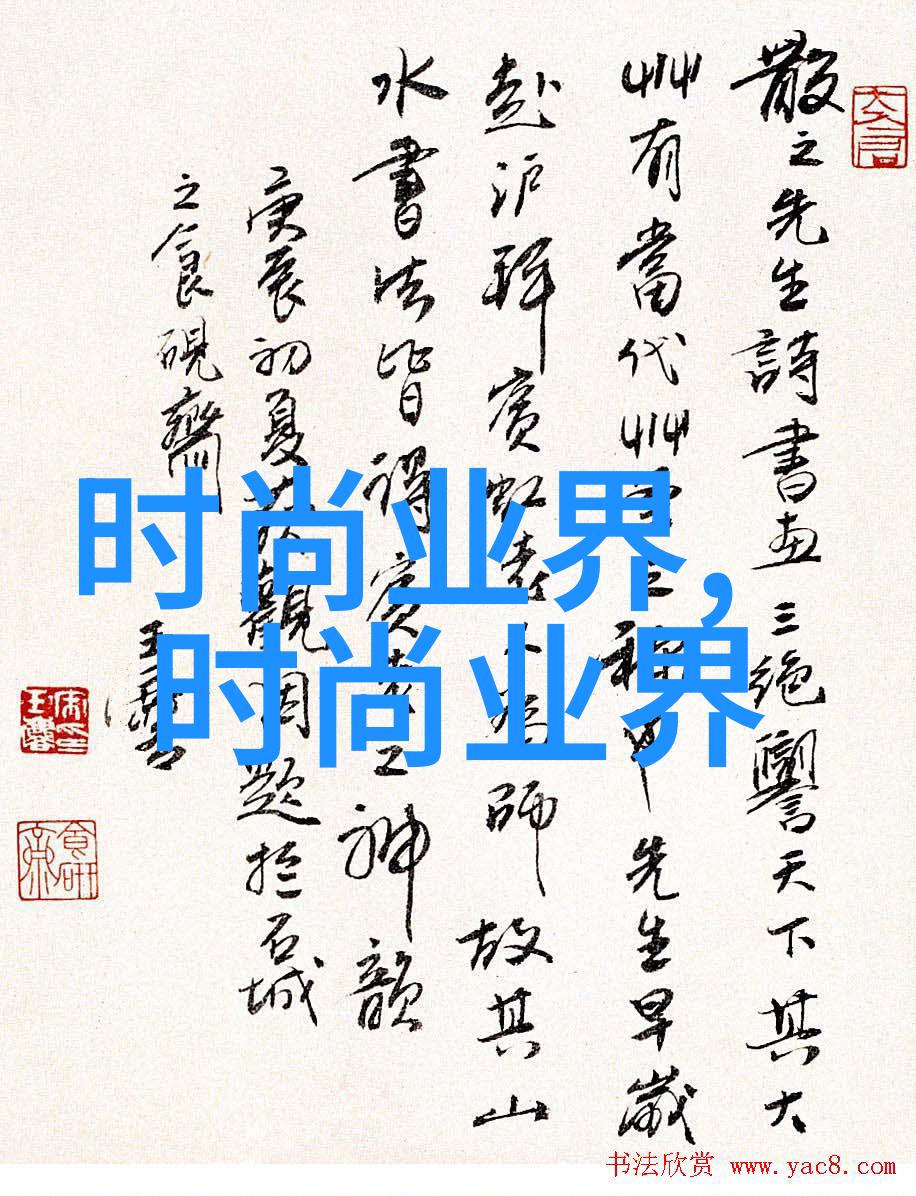 散之先生詩書画三绝譽天下其大
艸有當代艸之稱先生早歲
赴沪拜賓虹老人为師故其山
水書法皆得賓老之神韻
庚辰初夏获觀因题於石城
之食硯齋
时尚业界,
时尚业界
书法欣赏 www.yac8.com